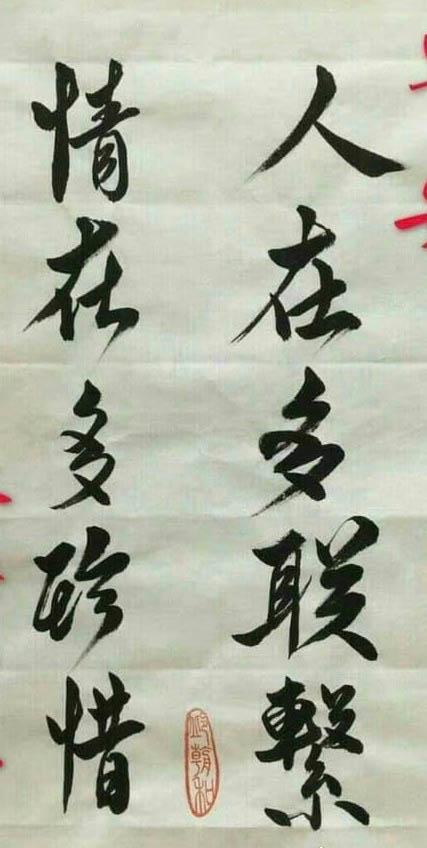 人在多联繫
情在多珍惜